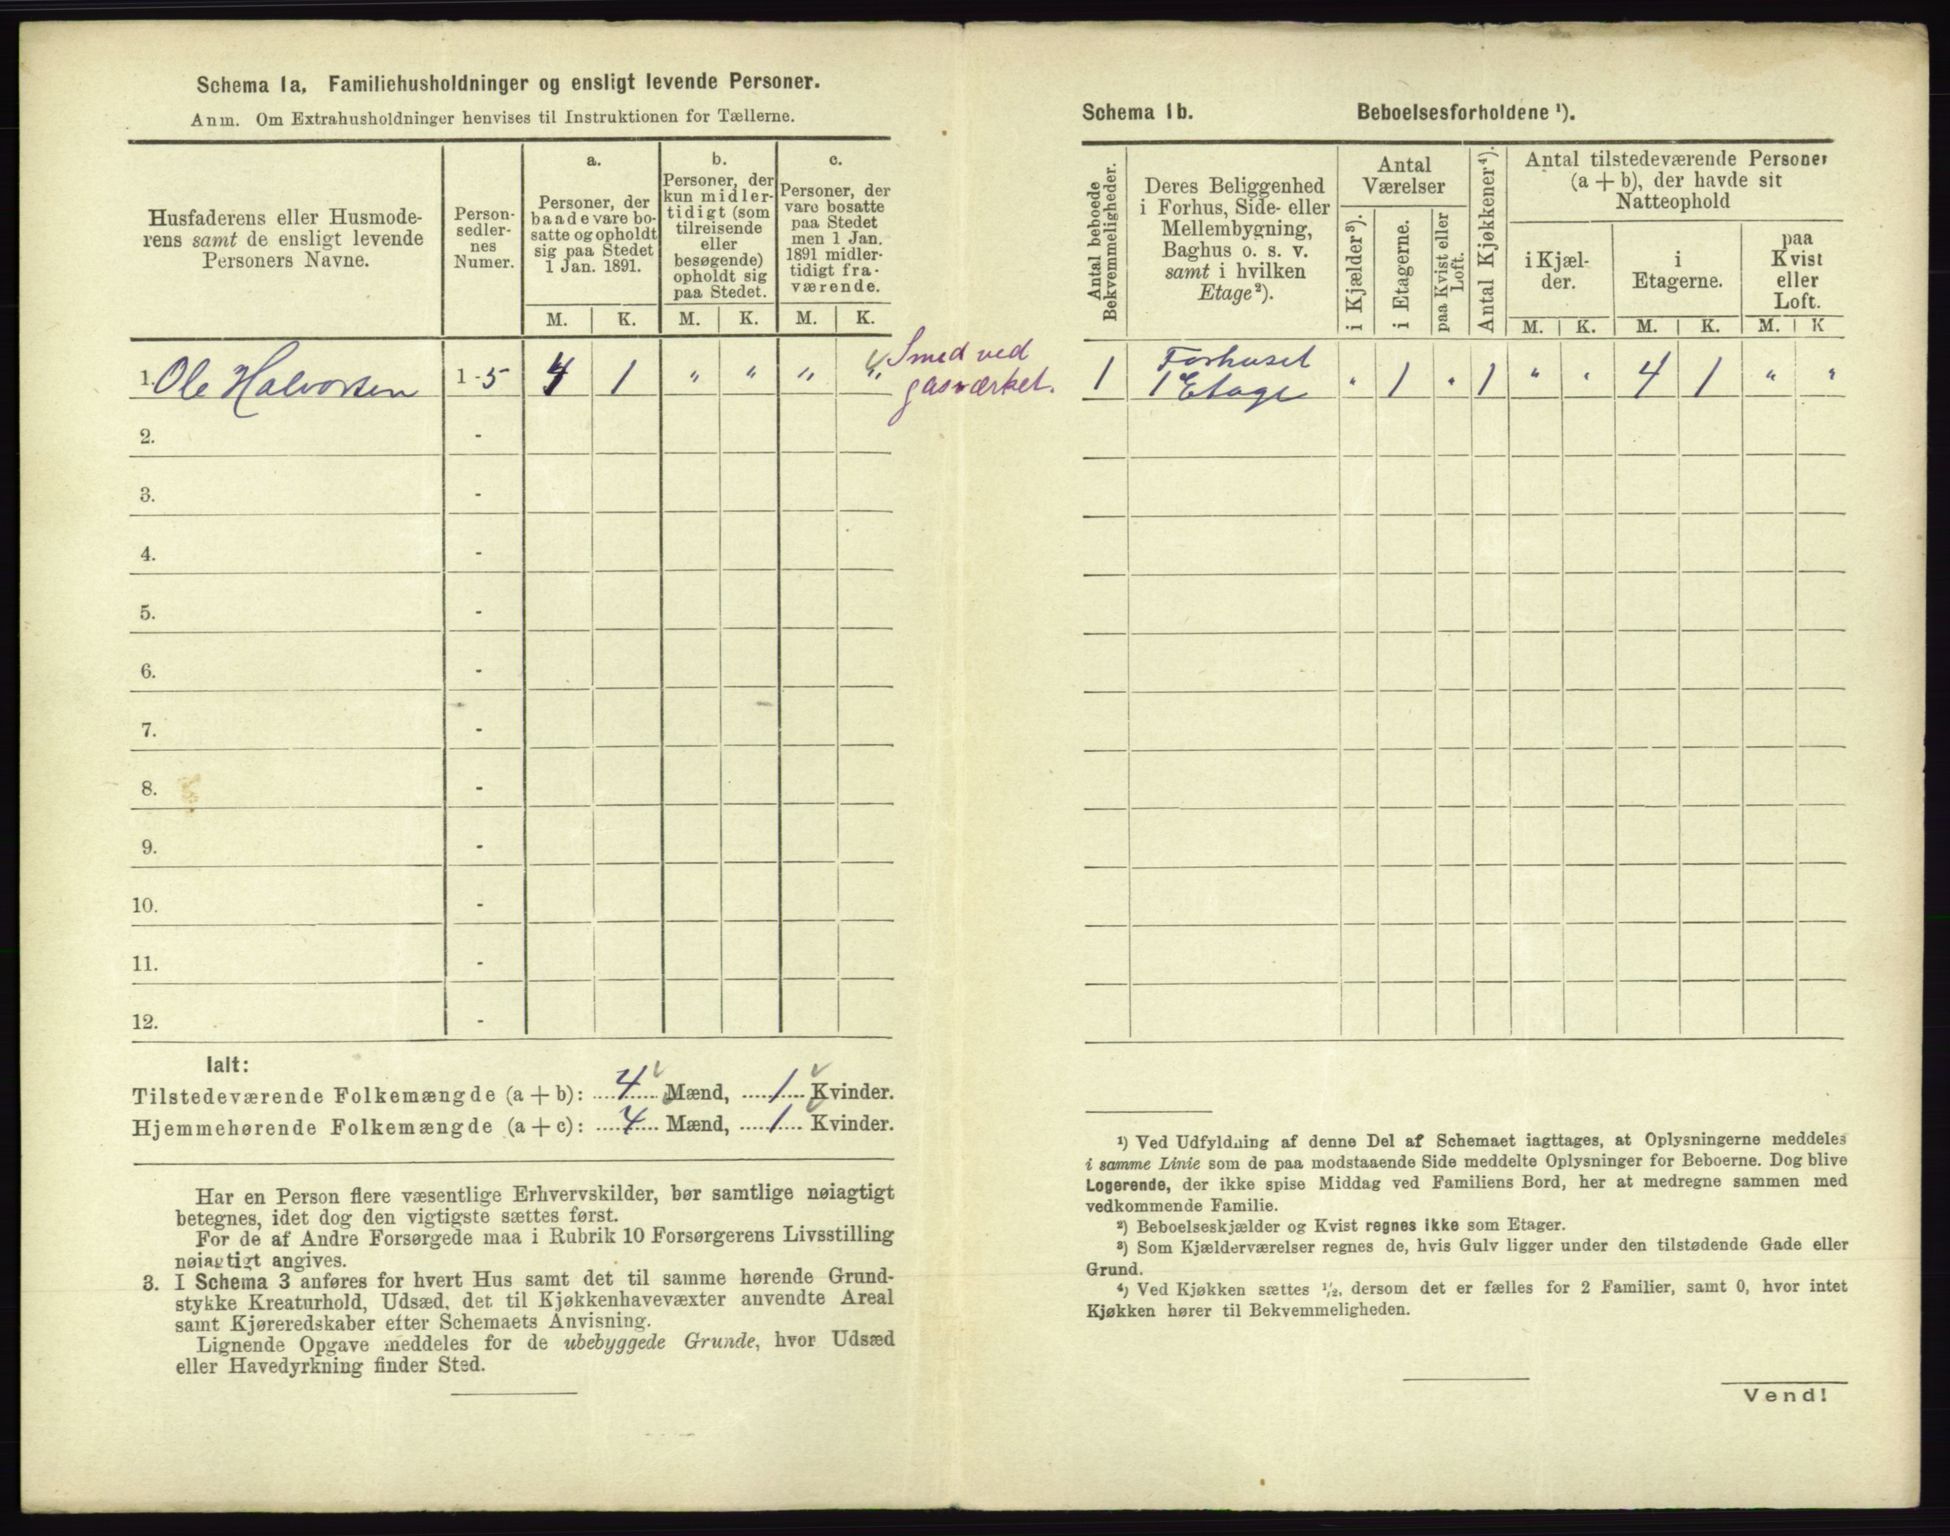 Schema 1a, Familiehusholdninger og ensligt levende Personer.
Anm. Om Extrahusholdninger henvises til Instruktionen for Tællerne.
Husfaderens eller Husmode-
rens samt de ensligt levende
Personers Navne.
Person-
sedler-
nes
Numer.
a.
Personer, der
baade vare bo-
satte og opholdt
sig paa Stedet
1 Jan. 1891.
b.
Personer, der
kun midler-
tidigt (som
tilreisende
eller
besøgende)
opholdt sig
paa Stedet.
c.
Personer, der
vare bosatte
paa Stedet
men 1 Jan.
1891 midler-
tidigt fra-
værende.
M. K. M. K. M. K.
1. Ole Halvorsen 1-5 4 1 " " " " Smed ved
gasværket.
2. -
3. -
4. -
5. -
6. -
7. -
8. -
9. -
10. -
11. -
12. -
Ialt:
Tilstedeværende Folkemængde (a + b): 4 Mænd, 1 Kvinder.
Hjemmehørende Folkemængde (a + c): 4 Mænd, 1 Kvinder.
Har en Person flere væsentlige Erhvervskilder, bør samtlige nøiagtigt
betegnes, idet dog den vigtigste sættes først.
For de af Andre Forsørgede maa i Rubrik 10 Forsørgerens Livsstilling
nøiagtigt angives.
3. I Schema 3 anføres for hvert Hus samt det til samme hørende Grund-
stykke Kreaturhold, Udsæd, det til Kjøkkenhavevæxter anvendte Areal
samt Kjøreredskaber efter Schemaets Anvisning.
Lignende Opgave meddeles for de ubebyggede Grunde, hvor Udsæd
eller Havedyrkning finder Sted.
Schema 1b. Beboelsesforholdene ¹).
Antal beboede
Bekvemmeligheder.
Deres Beliggenhed
i Forhus, Side- eller
Mellembygning,
Baghus o. s. v.
samt i hvilken
Etage²).
Antal
Værelser
i Kjælder³).
i Etagerne.
paa Kvist eller
Loft.
Antal Kjøkkener⁴).
Antal tilstedeværende Personer
(a + b), der havde sit
Natteophold
i Kjæl-
der.
i
Etagerne.
paa
Kvist
eller
Loft.
M. K. M. K. M. K
1 Forhuset
1 Etage " 1 " 1 " " 4 1 " "
¹) Ved Udfyldning af denne Del af Schemaet iagttages, at Oplysningerne meddeles
i samme Linie som de paa modstaaende Side meddelte Oplysninger for Beboerne. Dog blive
Logerende, der ikke spise Middag ved Familiens Bord, her at medregne sammen med
vedkommende Familie.
²) Beboelseskjælder og Kvist regnes ikke som Etager.
³) Som Kjælderværelser regnes de, hvis Gulv ligger under den tilstødende Gade eller
Grund.
⁴) Ved Kjøkken sættes ¹/₂, dersom det er fælles for 2 Familier, samt 0, hvor intet
Kjøkken hører til Bekvemmeligheden.
Vend!